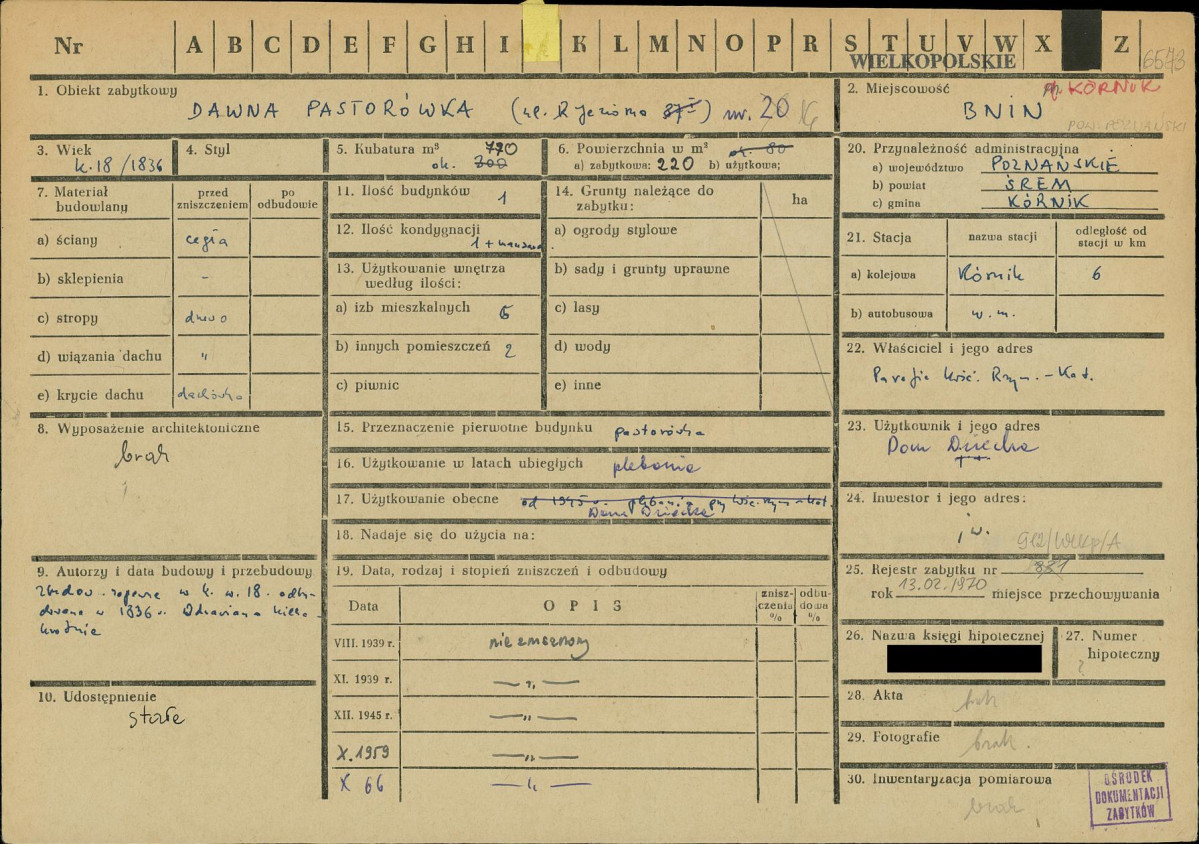 Nr A B C D E F G H I K L M N O P R S T U V W X Z
WIELKOPOLSKIE 6573
1. Obiekt zabytkowy
DAWNA PASTORÓWKA (ul. R Jeziorna 37) nr. 20 16
2. Miejscowość KÓRNIK
BNIN
POW. POZNAŃSKI
3. Wiek
k. 18 / 1836
4. Styl
5. Kubatura m³ 770
ok. 700
6. Powierzchnia w m² ok. 80
a) zabytkowa: 220 b) użytkowa;
20. Przynależność administracyjna
a) województwo POZNAŃSKIE
b) powiat ŚREM
c) gmina KÓRNIK
7. Materiał budowlany
przed zniszczeniem
po odbudowie
a) ściany cegła
b) sklepienia -
c) stropy drewo
d) wiązania dachu "
e) krycie dachu dachówka
11. Ilość budynków 1
12. Ilość kondygnacji
1 + mansard
13. Użytkowanie wnętrza
według ilości:
a) izb mieszkalnych 6
b) innych pomieszczeń 2
c) piwnic
14. Grunty należące do
zabytku: ha
a) ogrody stylowe
b) sady i grunty uprawne
c) lasy
d) wody
e) inne
21. Stacja
nazwa stacji
odległość od
stacji w km
a) kolejowa Kórnik 6
b) autobusowa w. m.
22. Właściciel i jego adres
Parafia kość. Rzym.-Kat.
8. Wyposażenie architektoniczne
brak
15. Przeznaczenie pierwotne budynku pastorówka
16. Użytkowanie w latach ubiegłych plebania
17. Użytkowanie obecne od 1945 r. plebania przy kośc. rzym-kat.
Dom Dziecka
18. Nadaje się do użycia na:
23. Użytkownik i jego adres
Dom Dziecka
24. Inwestor i jego adres:
j.w.
912/Wlkp/A
9. Autorzy i data budowy i przebudowy
zbudow. zapewne w k. w. 18. odbu-
dowana w 1836 r. Odnawiana kilka-
krotnie
19. Data, rodzaj i stopień zniszczeń i odbudowy
Data
OPIS
znisz-
czenia
%
odbu-
dowa
%
VIII. 1939 r. nie zmieniony
XI. 1939 r. — " —
XII. 1945 r. — " —
X. 1959 — " —
X 66 — " —
25. Rejestr zabytku nr 881
rok 13.02.1970 miejsce przechowywania
26. Nazwa księgi hipotecznej
27. Numer
hipoteczny
?
10. Udostępnienie
stałe
28. Akta brak
29. Fotografie brak.
30. Inwentaryzacja pomiarowa
brak
OŚRODEK
DOKUMENTACJI
ZABYTKÓW